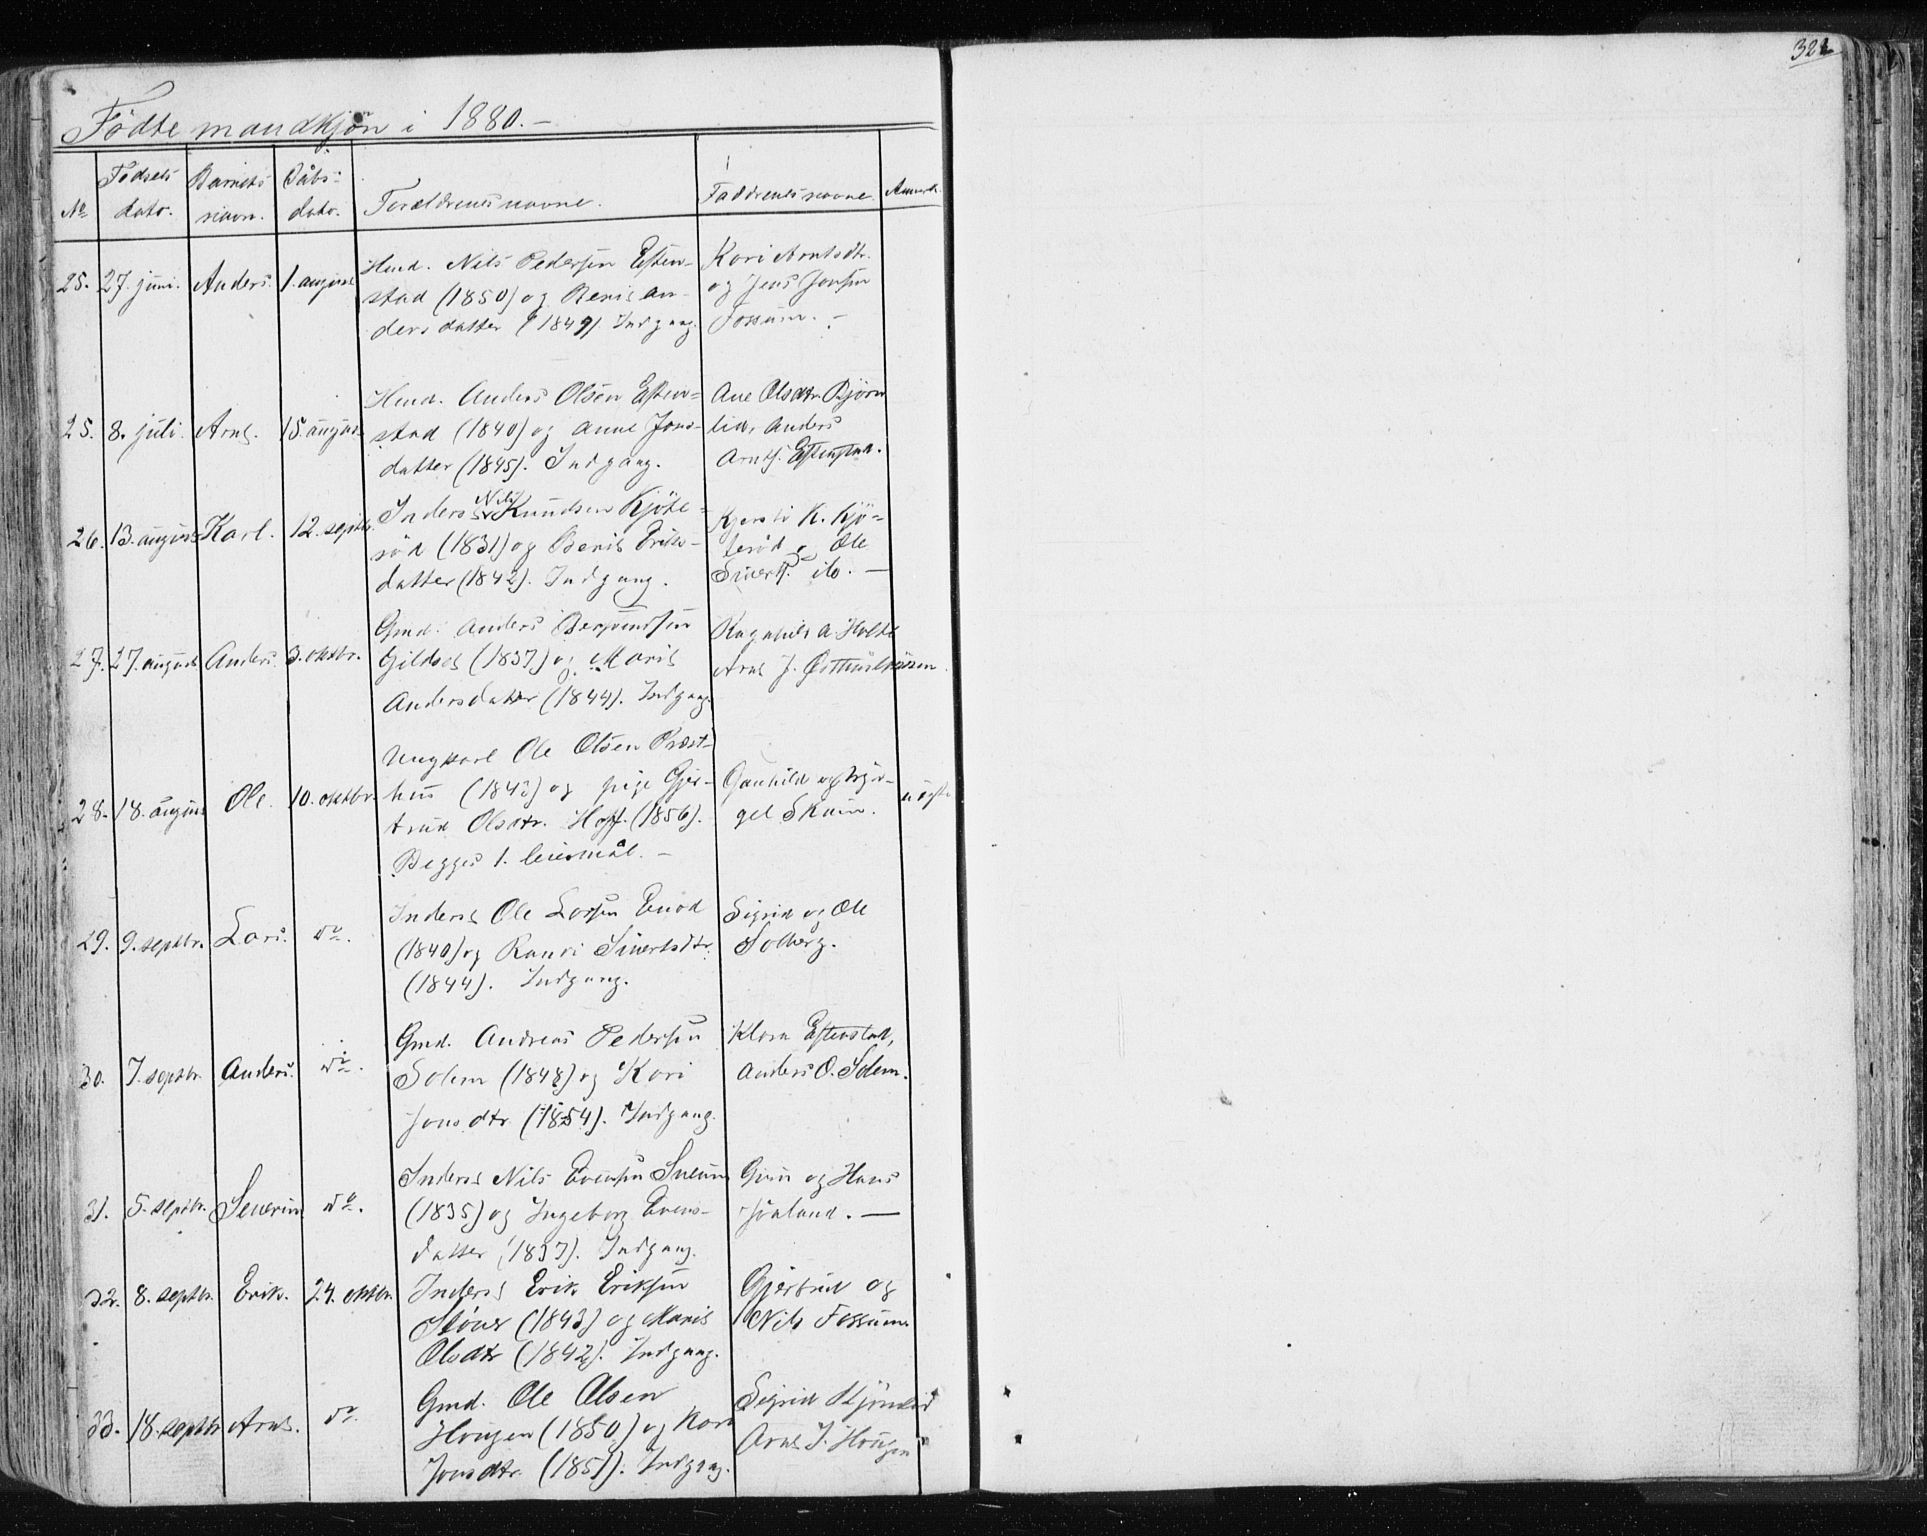 322
Födte mandkjøn i 1880.-
No
Födsels
dato.
Barnets
navn.
Dåbs-
dato.
Forældrenes navne.
Faddrenes navne.
Anmerk.
25. 27. juni. Anders. 1. august
Hmd. Nils Pedersen Esten-
stad (1850) og Berit An-
dersdatter (1849) Indgang.
Kari Arntsdtr.
og Jens Jonsen
Fossum. -
25. 8. juli. Arnt. 15. august
Hmd. Anders Olsen Esten-
stad (1840) og Anne Jons-
datter (1845). Indgang.
Ane Olsdtr. Bjørn
lid, Anders
Arnts. Estenstad.
26. 13. august Karl. 12. septbr.
Inders Nils Knudsen Kjöte-
röd (1831) og Berit Eriks-
datter (1842). Indgang.
Kjersti K. Kjö-
teröd og Ole
Sivert. do. —
27. 27. august Anders. 3. oktbr.
Gmd. Anders Bersvendsen
Gildset (1837) og Marit
Andersdatter (1844). Indgang.
Ragnhild A. Holte
Arnt J.
28. 18. august Ole. 10. oktbr.
Ungkarl Ole Olsen Præst-
hus (1843) og pige Gjer-
trud Olsdtr. Hoff. (1856).
Begges 1. leiermål. -
Gunhild og Ingr-
gel Skam.
uægte
29. 9. septbr. Lars. do.
Inders Ole Larsen Enod
(1840) og Randi Sivertsdtr.
(1844). Indgang.
Sigrid og Ole
Solberg.
30. 7. septbr. Anders. do.
Gmd. Andreas Pedersen
Solem (1848) og Kari
Jonsdtr (1854). Indgang.
Klara Estenstad,
Anders O. Solem.
31. 5. septbr. Severin do.
Inders Nils Evensen Sneum
(1835) og Ingeborg Evens-
datter (1837). Indgang.
Guri og Hans
—
32. 8. septbr. Erik. 24. oktbr.
Inders Erik Eriksen
Stöver (1843) og Marit
Olsdtr (1842). Indgang.
Gjertrud og
Nils Fossum
33. 18. septbr Arnt. do.
Gmd. Ole Olsen
Hougen (1850) og Kari
Jonsdtr. (1851). Indgang.
Sigrid
Arnt J. Hougen